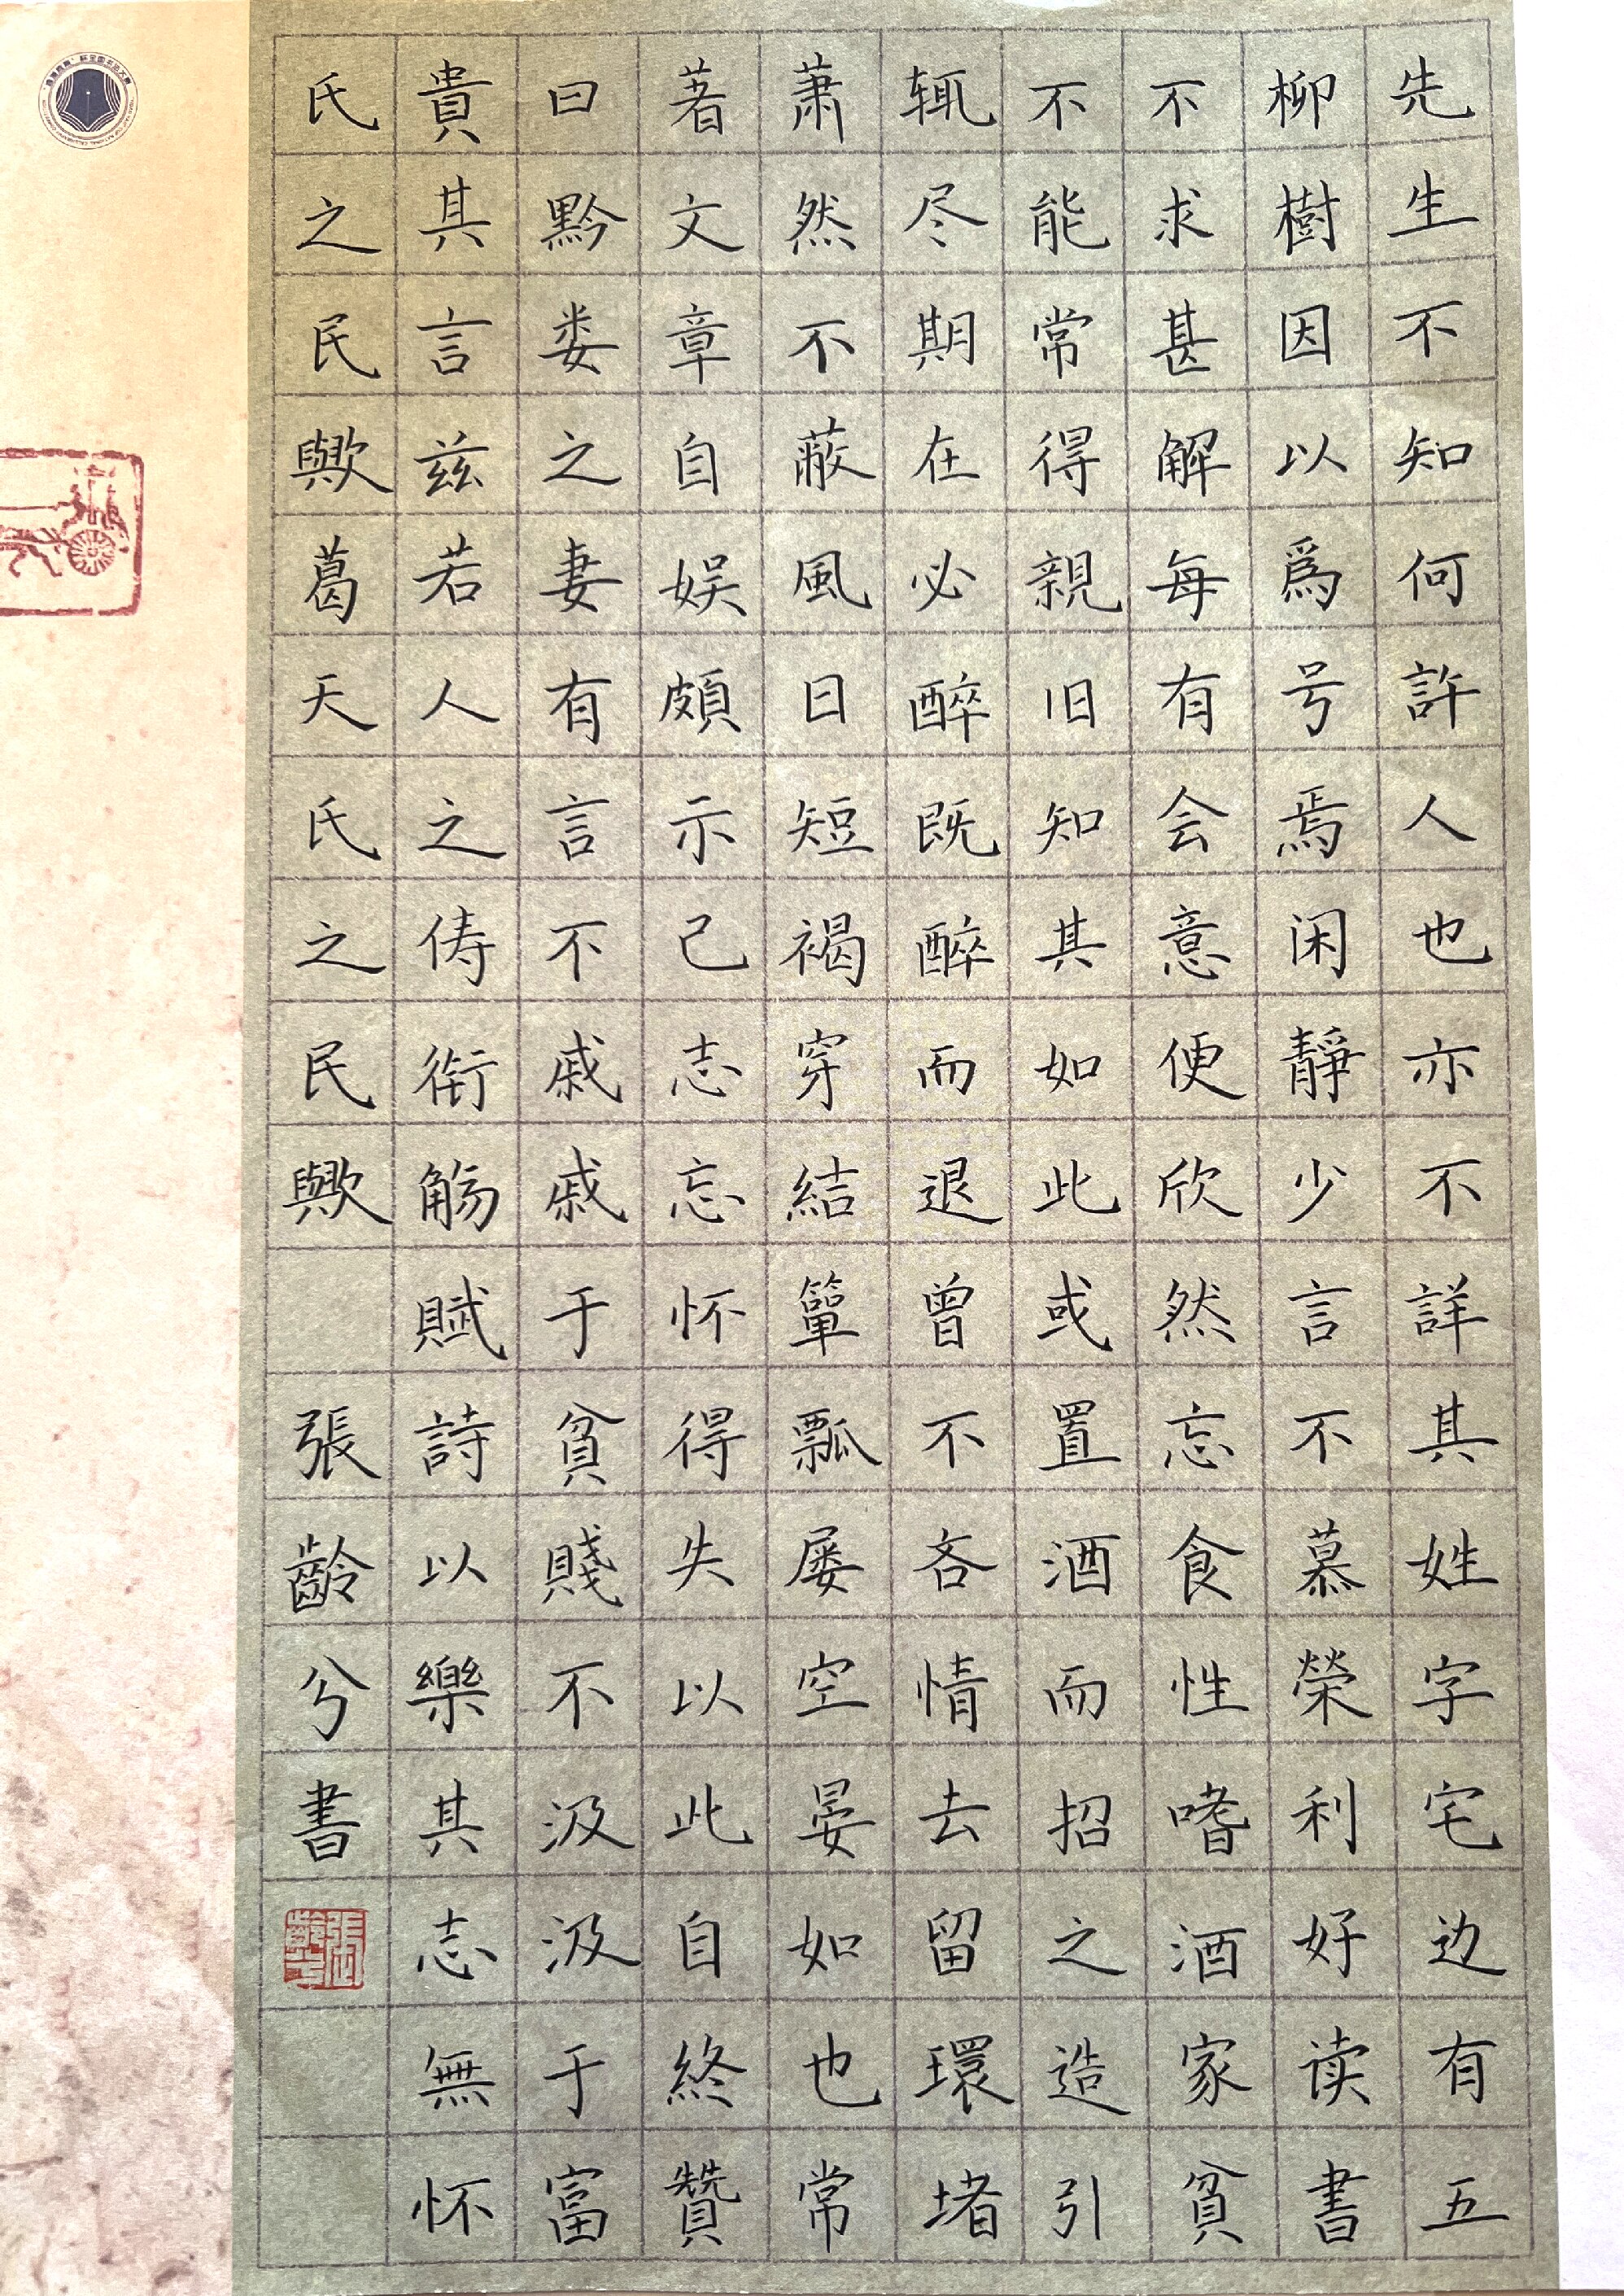 先生不知何許人也亦不詳其姓字宅边有五
柳樹因以爲号焉闲靜少言不慕榮利好读書
不求甚解每有会意便欣然忘食性嗜酒家貧
不能常得親旧知其如此或置酒而招之造引
辄尽期在必醉既醉而退曾不吝情去留環堵
萧然不蔽風日短褐穿結簞瓢屡空晏如也常
著文章自娱頗示己志忘怀得失以此自終贊
曰黔娄之妻有言不戚戚于貧賤不汲汲于富
貴其言兹若人之俦衔觞賦詩以樂其志無怀
氏之民歟葛天氏之民歟 張齡兮書